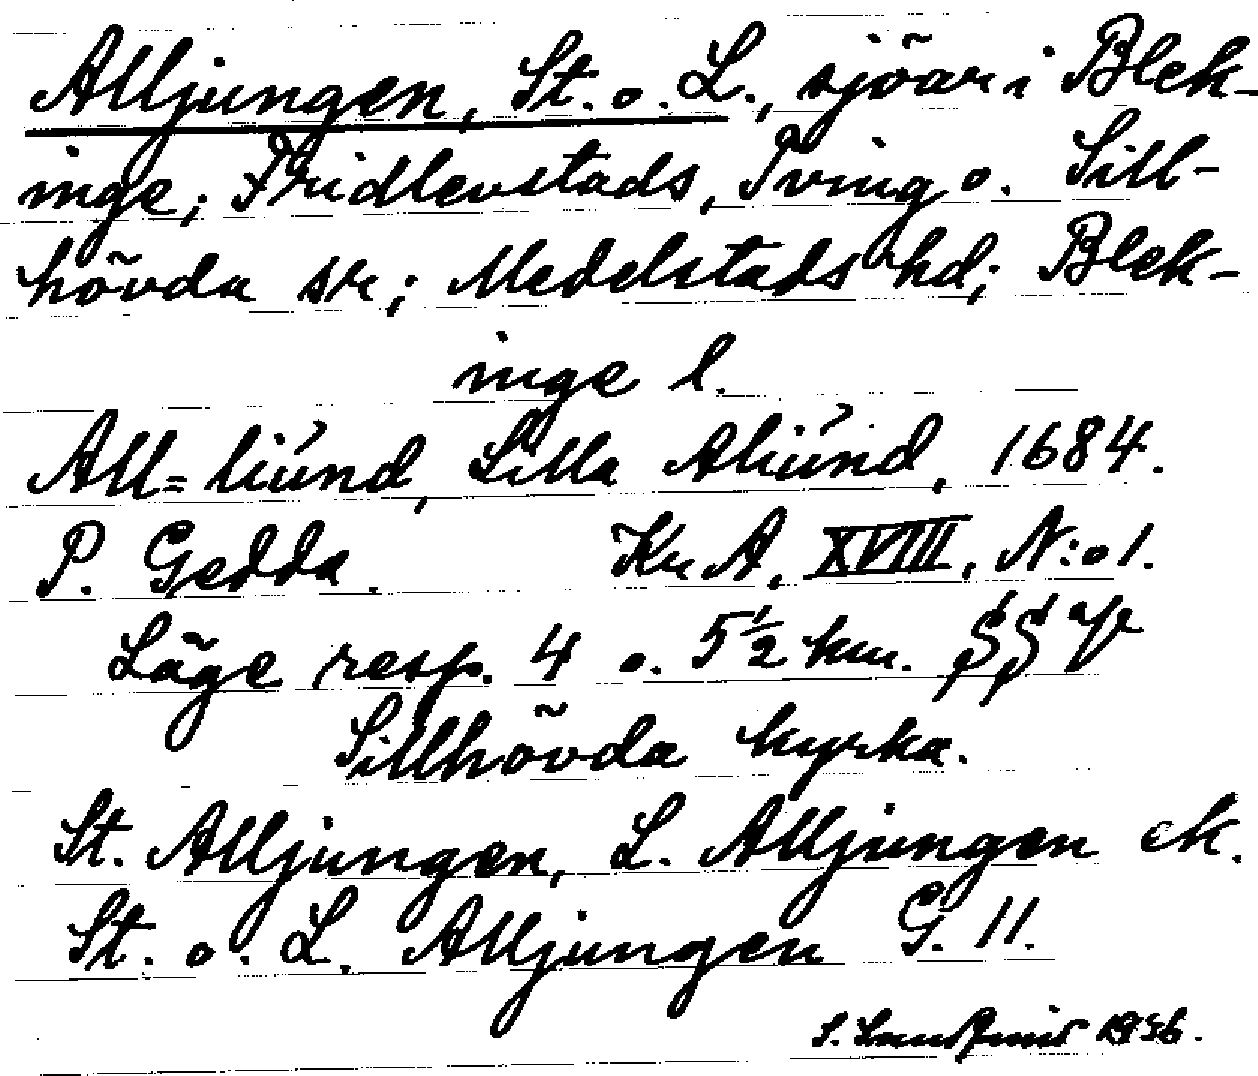 Alljungen, St. o. L., sjöar i Blek-
inge; Fridlevstads, Tving o. Sill-
hövda sk; Medelstads hd; Blek-
inge l.
All= liúnd, Lilla Aliúnd, 1684.
P. Gedda. Kr A, XVIII, N:o 1.
Läge resp. 4 o. 5 1/2 km.
Sillhövda kyrka.
St. Alljungen, L. Alljungen ek.
St. o. L. Alljungen G. 11.
1936.